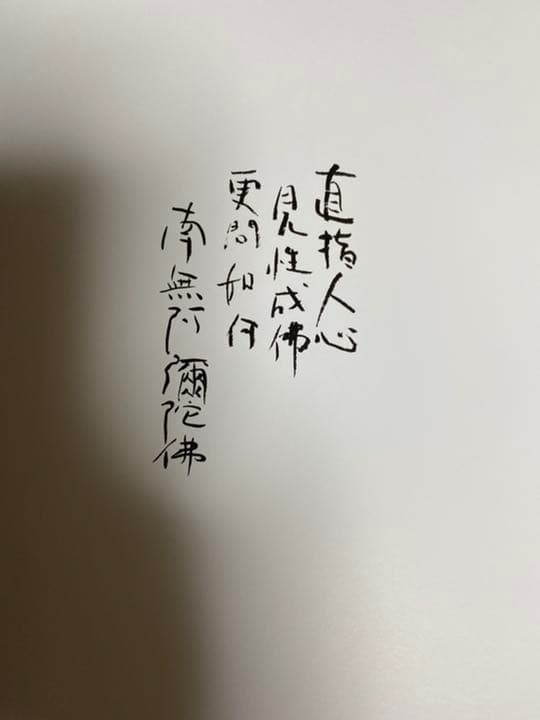 直指人心
見性成佛
更問如何
南無阿彌陀佛